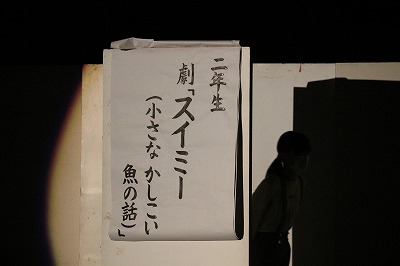 二年生
劇「スイミー
(小さな かしこい
魚の話)」